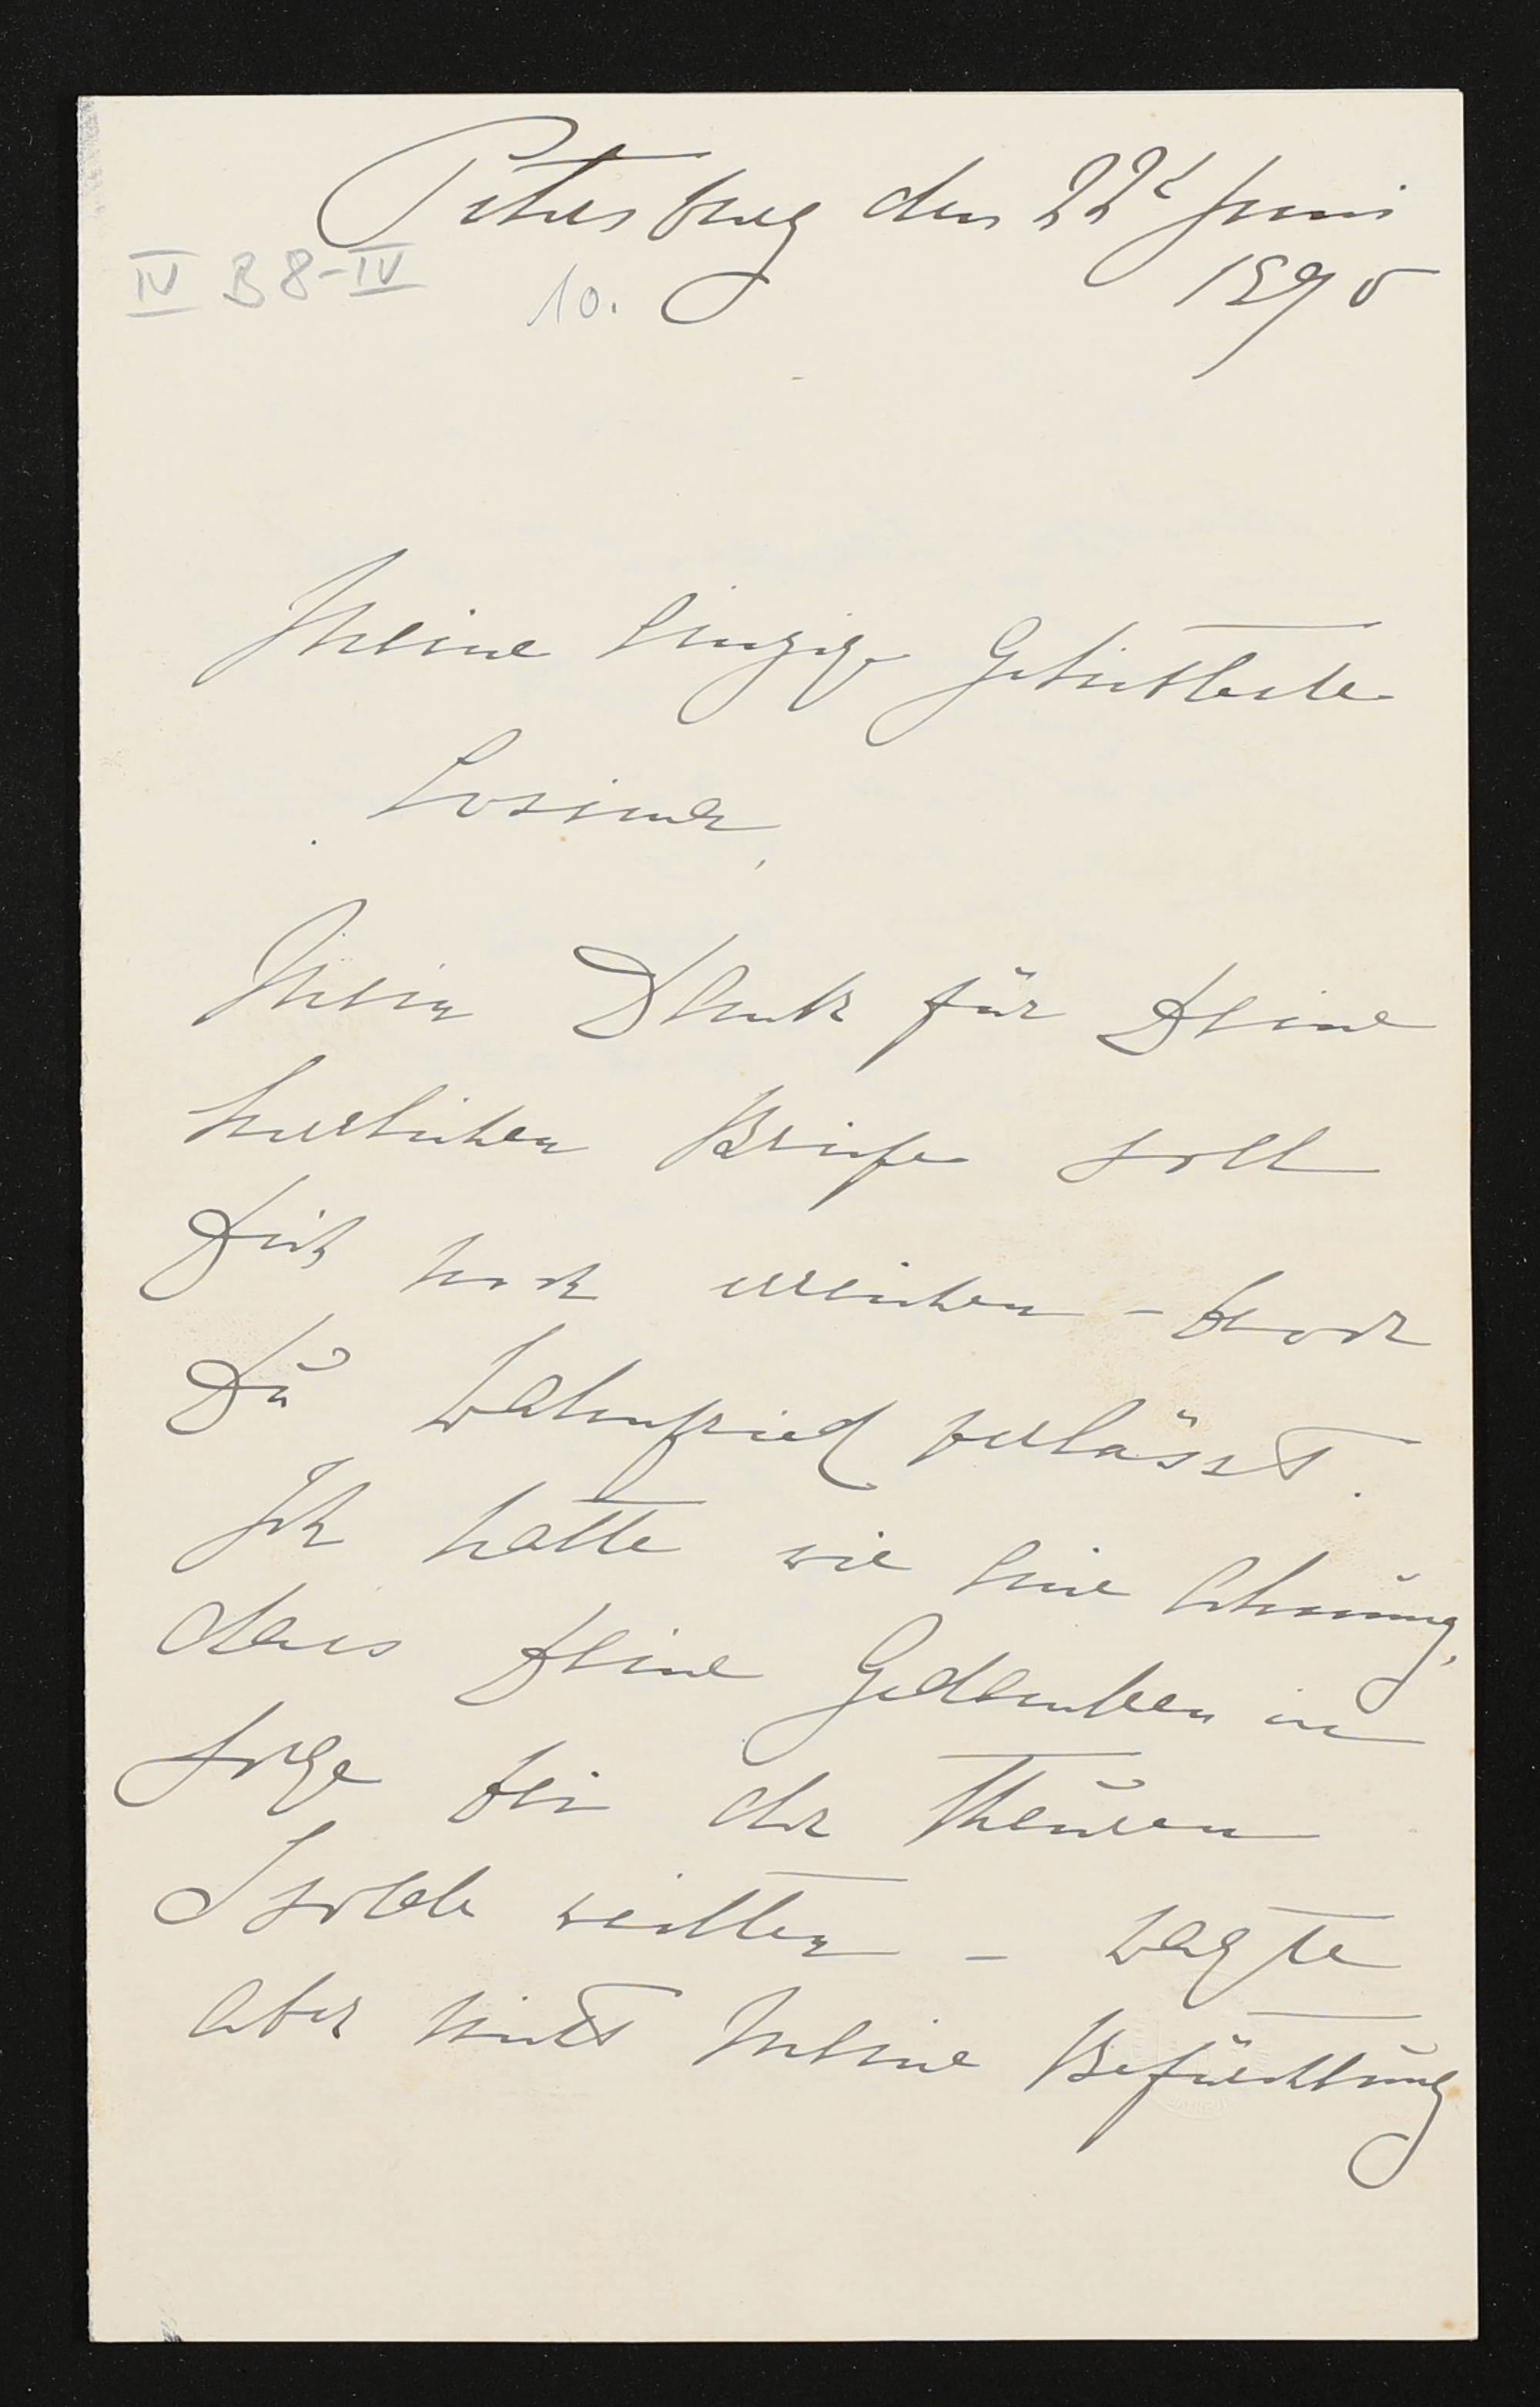 Petersburg den 22t Juni
1890
IV B 8-IV
10.
Meine Einzig Geliebteste
Cosima,
Mein Dank für Deine
herrlichen Briefe soll
Dich noch erreichen - bevor
Du Wahnfried verlässt.
Ich hatte wie eine Ahnung,
dass Deine Gedanken in
Sorge bei der Theuren
Isolde weilten - wagte
aber nicht meine Befürchtung